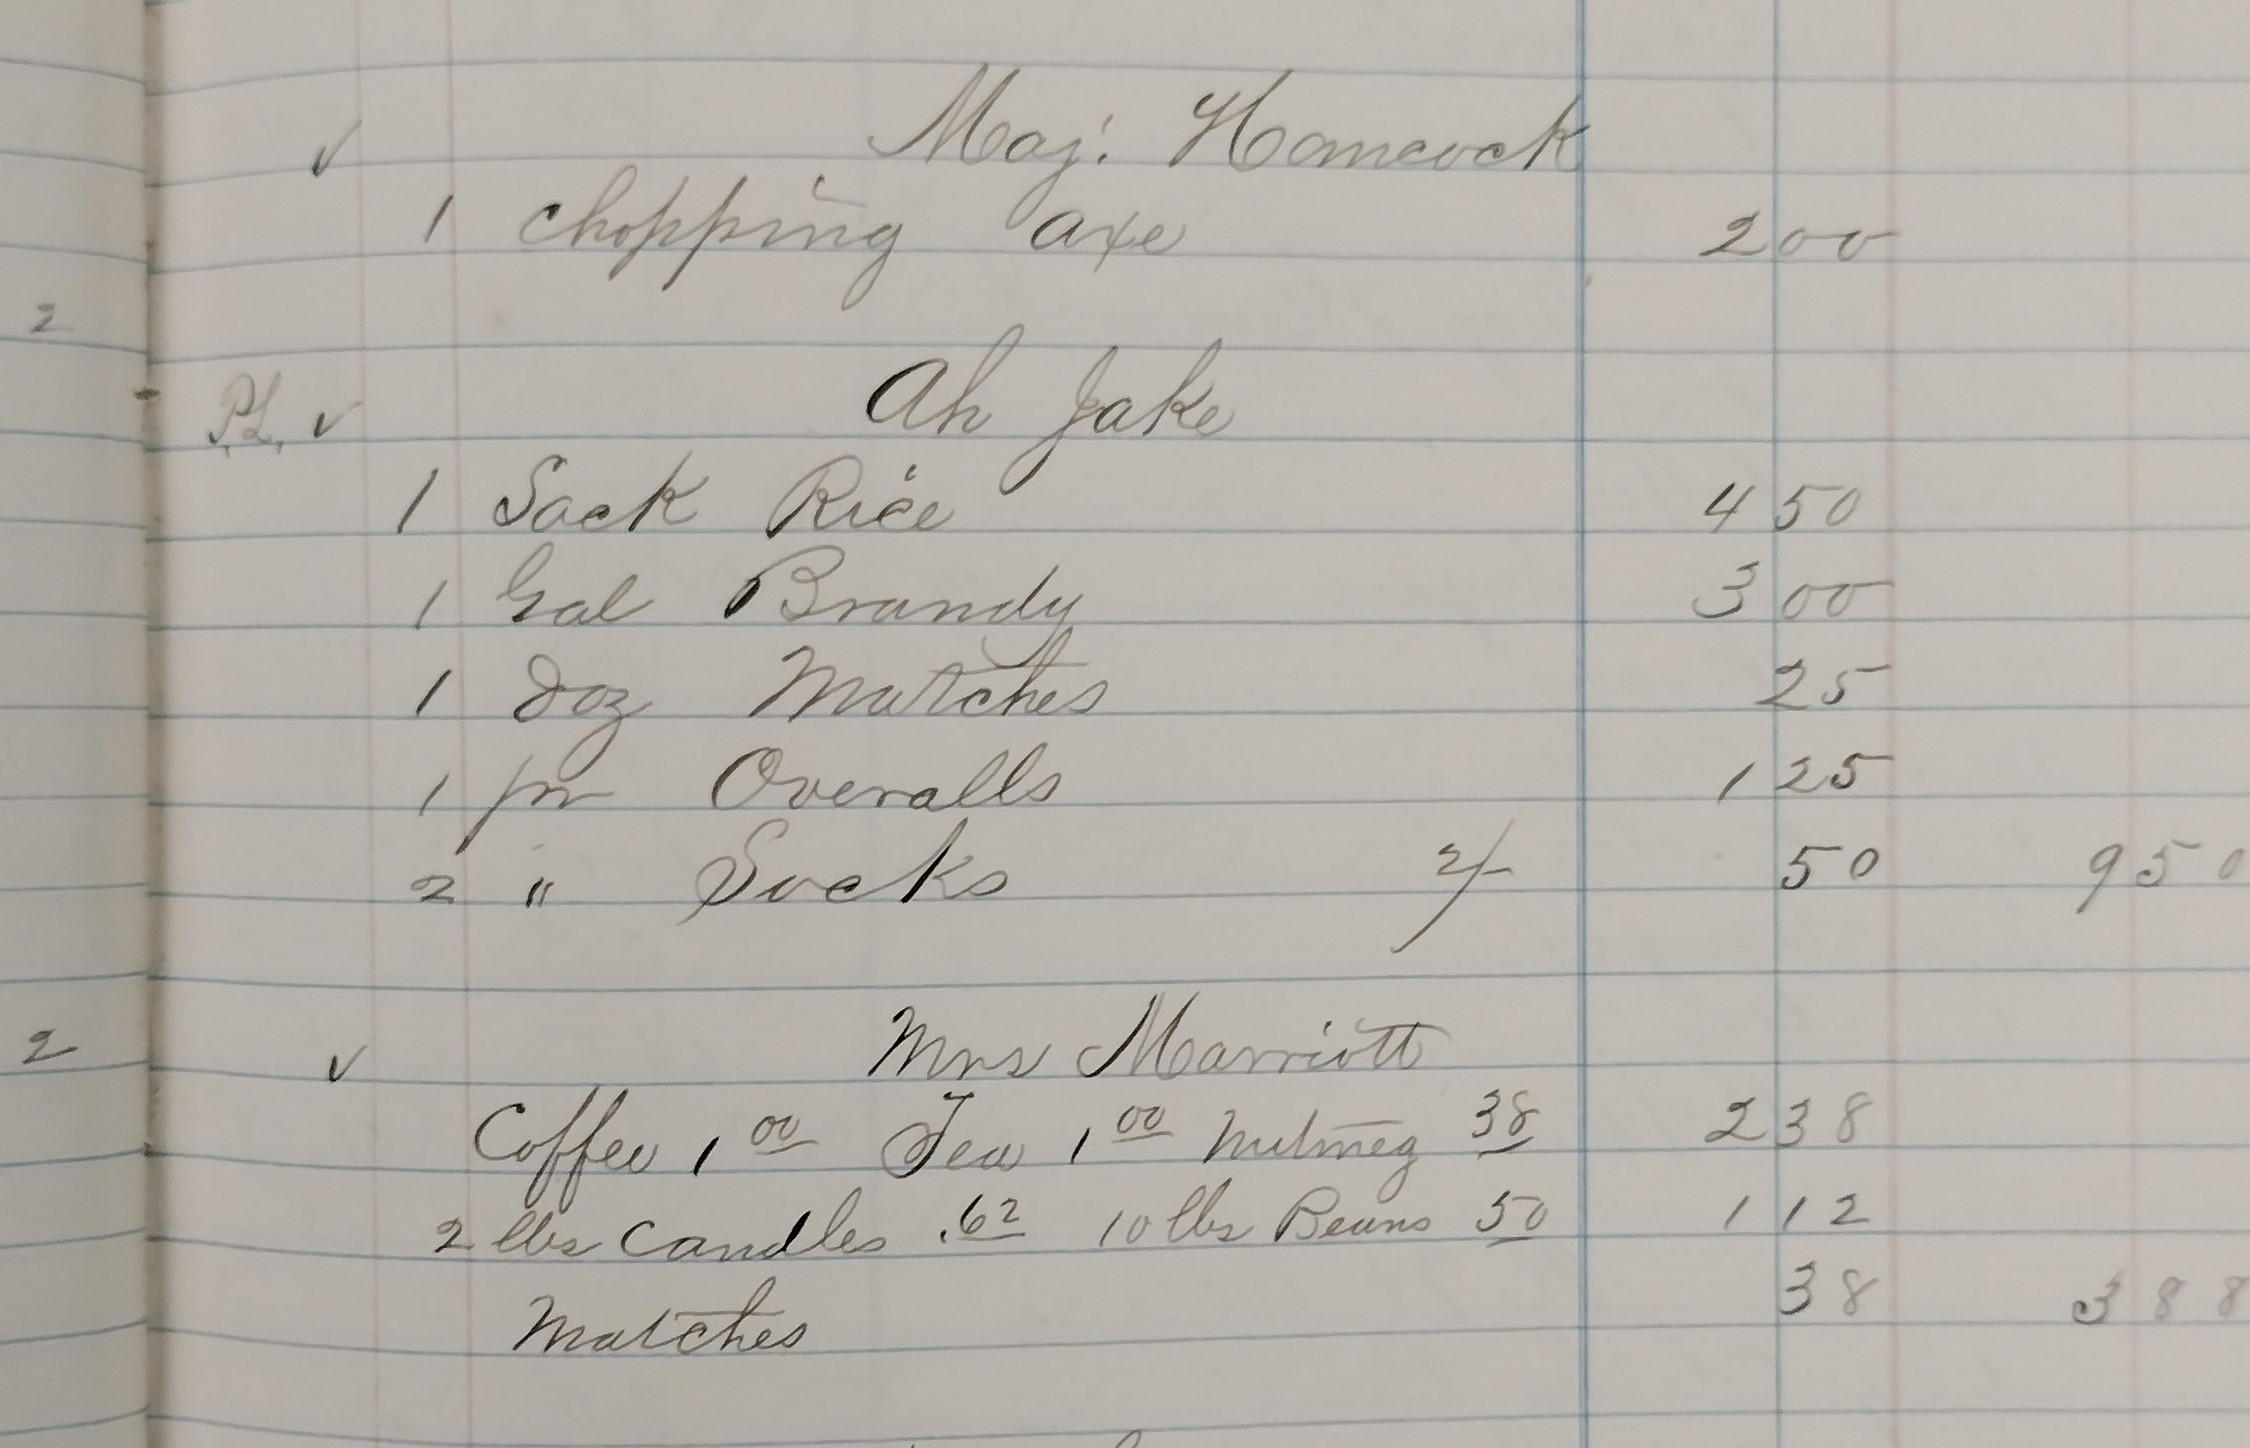 ✓ Maj. Hancock
1 chopping axe 2 00
2
P.L. ✓ Ah Jake
1 Sack Rice 4 50
1 Gal Brandy 3 00
1 Doz Matches 25
1 pr Overalls 1 25
2 " Socks 2/- 50 9 50
2
✓ Mrs Marriott
Coffee 1 00 Tea 1 00 Nutmeg 38 2 38
2 lbs Candles .62 10 lbs Beans 50 1 12
Matches 38 3 88